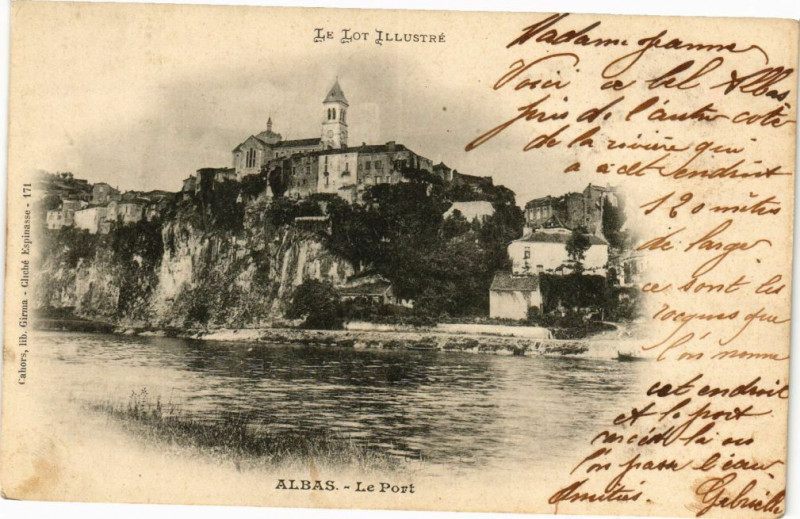 LE LOT ILLUSTRÉ
Madame Jeanne
Voici ce bel Albas
pris de l'autre coté
de la rivière qui
a a cet endroit
120 mètres
de large
ce sont les
rocques que
l'on nomme
cet endroit
et le port
c'est là ou
l'on passe l'eau
Amitiés. Gabrielle
Cahors, lib. Girma - Cliché Espinasse - 171
ALBAS. - Le Port